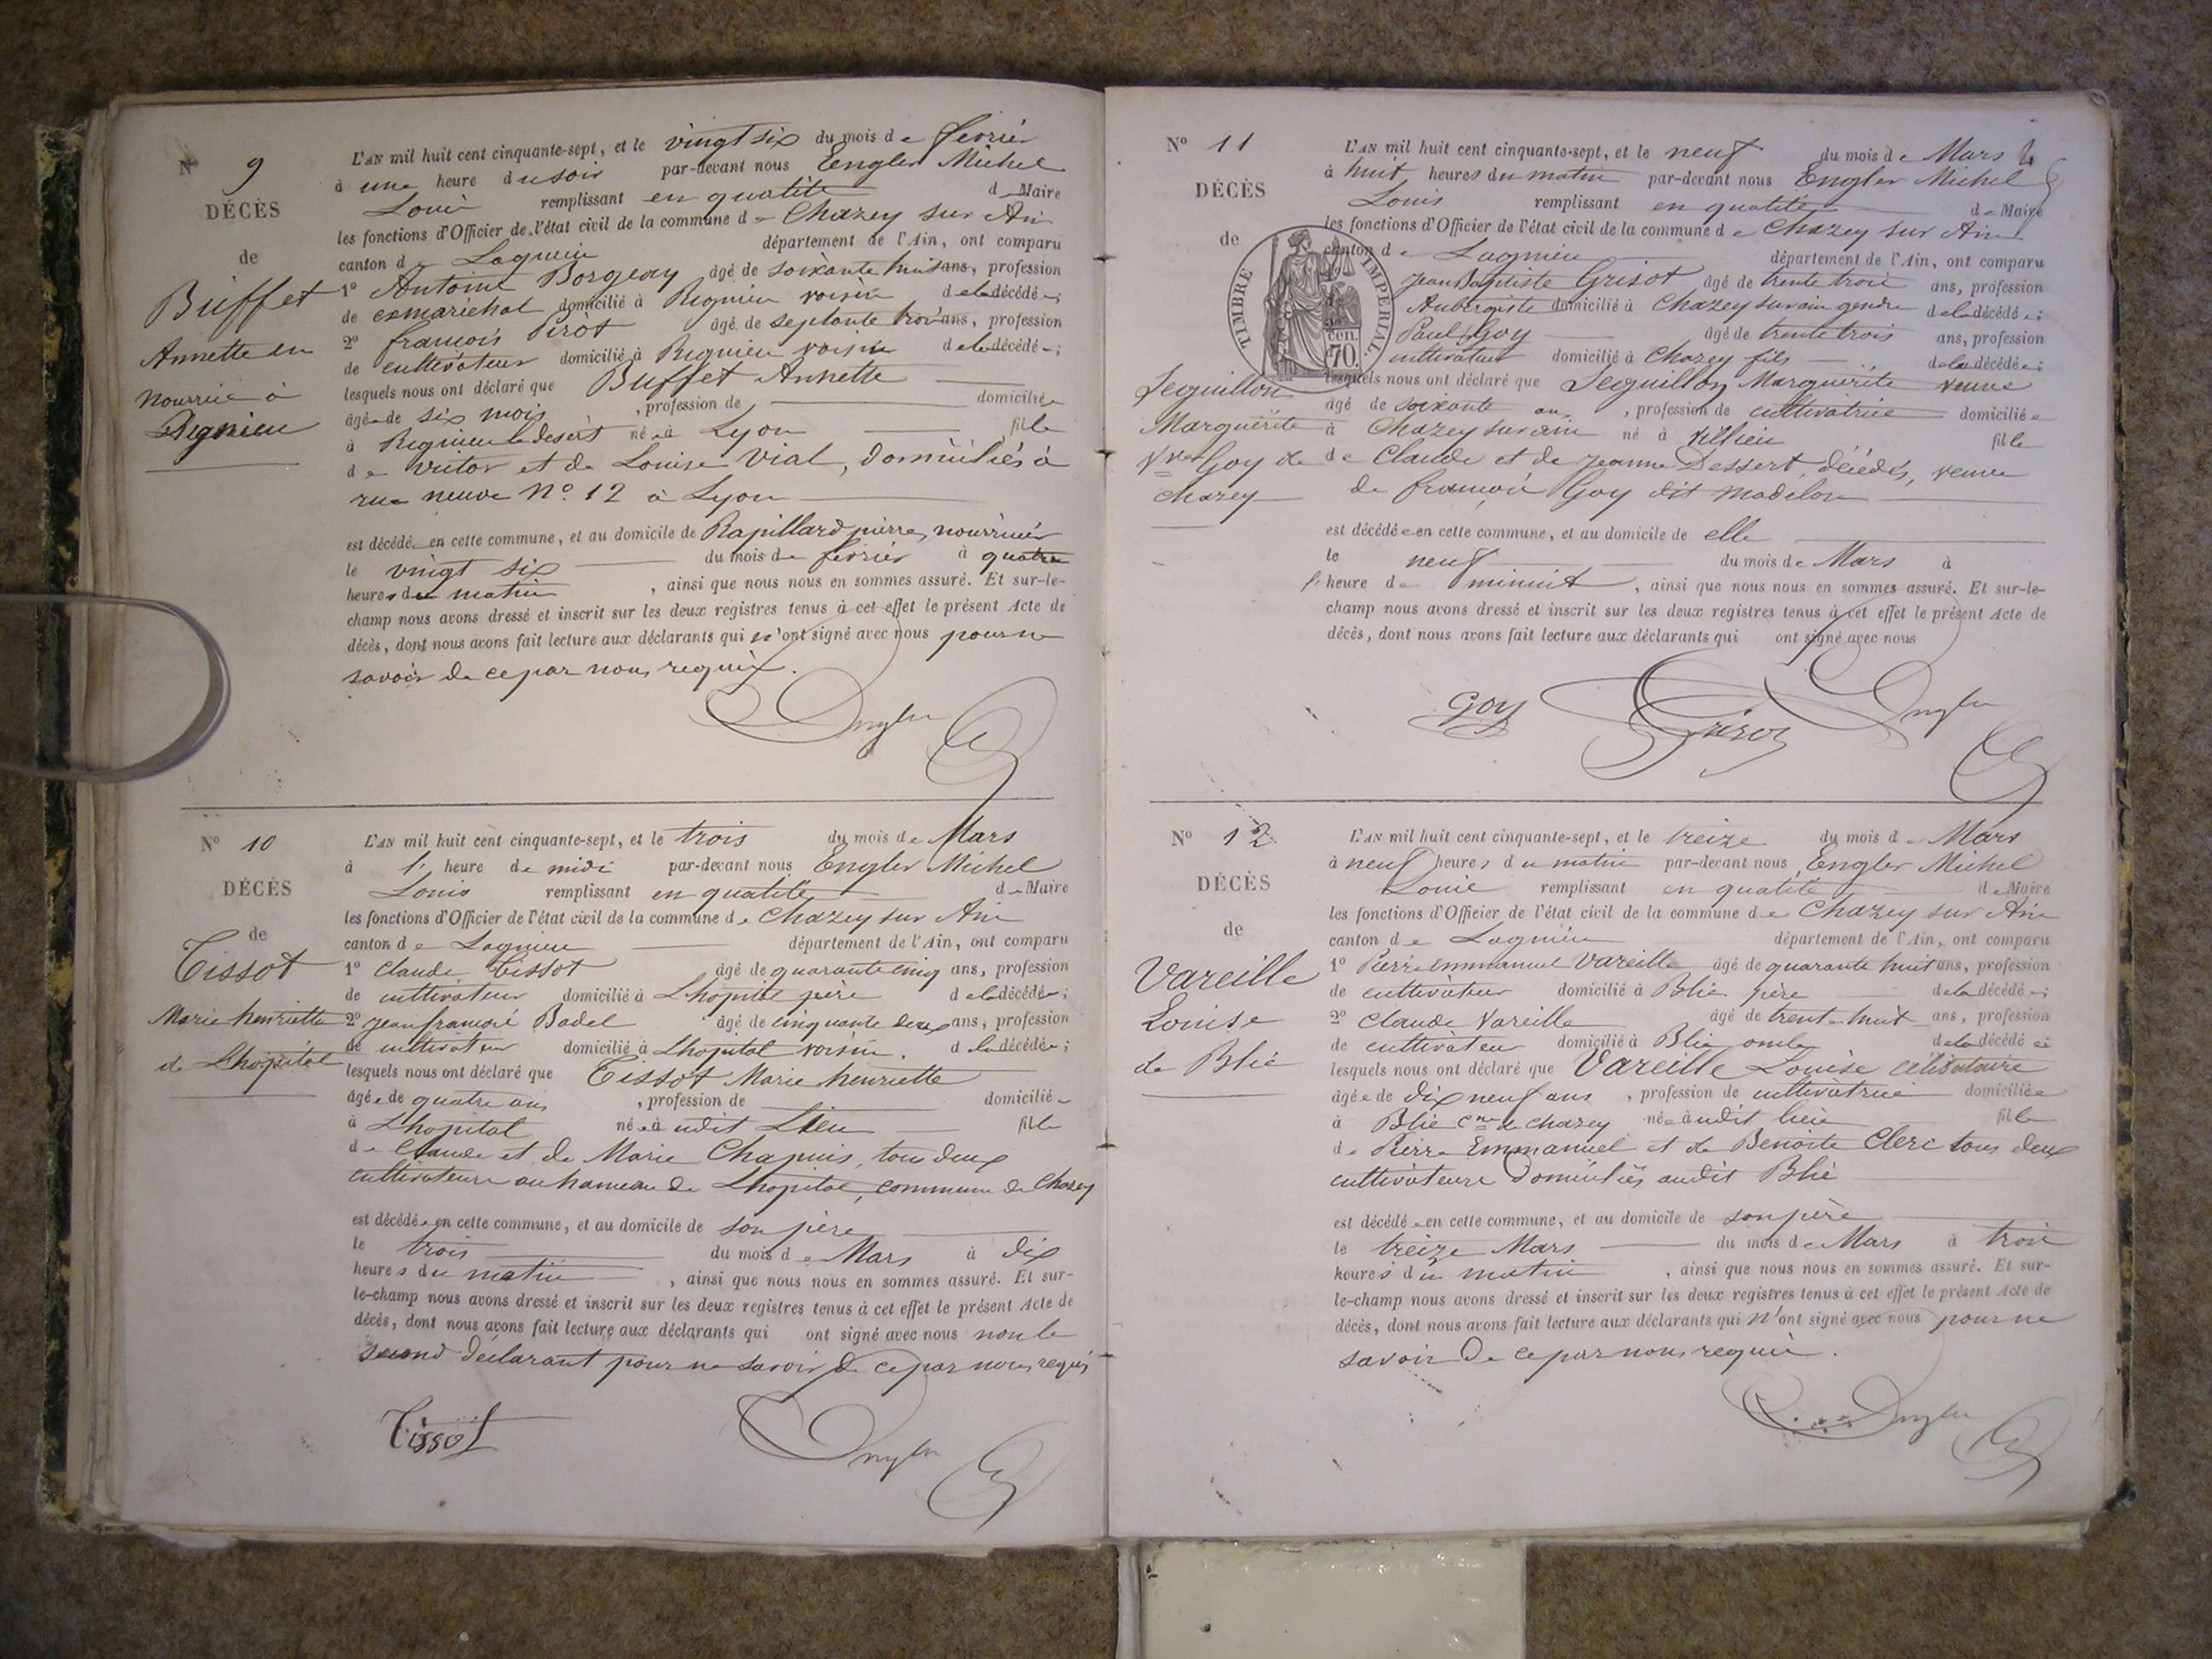 N° 9
DÉCÈS
de
Buffet
Annette en
nourrice à
Rignieu
L'AN mil huit cent cinquante-sept, et le vingt six du mois de fevrier
à une heure du soir par-devant nous Engler Michel
Louis remplissant en qualité de Maire
les fonctions d'Officier de l'état civil de la commune de Chazey sur Ain
canton de Lagnieu département de l'Ain, ont comparu
1° Antoine Borgeay âgé de soixante huit ans, profession
de exmaréchal domicilié à Rignieu voisin de la décédée;
2° françois Pirot âgé de septante trois ans, profession
de cultivateur domicilié à Rignieu voisin de la décédée;
lesquels nous ont déclaré que Buffet Annette
âgée de six mois, profession de domiciliée
à Rignieu le desert née à Lyon fille
de Victor et de Louise Vial, domiciliés à
rue neuve N° 12 à Lyon
est décédée en cette commune, et au domicile de Rapillard pierre, nourricier
le vingt six du mois de fevrier à quatre
heures du matin, ainsi que nous nous en sommes assuré. Et sur-le-
champ nous avons dressé et inscrit sur les deux registres tenus à cet effet le présent Acte de
décès, dont nous avons fait lecture aux déclarants qui n'ont signé avec nous pour ne
savoir de ce par nous requis.
Engler
N° 10
DÉCÈS
de
Tissot
Marie henriette
de Lhopital
L'AN mil huit cent cinquante-sept, et le trois du mois de Mars
à l' heure de midi par-devant nous Engler Michel
Louis remplissant en qualité de Maire
les fonctions d'Officier de l'état civil de la commune de Chazey sur Ain
canton de Lagnieu département de l'Ain, ont comparu
1° Claude Tissot âgé de quarante cinq ans, profession
de cultivateur domicilié à Lhopital père de la décédée;
2° jean françois Badel âgé de cinquante deux ans, profession
de cultivateur domicilié à Lhopital voisin. de la décédée;
lesquels nous ont déclaré que Tissot Marie henriette
âgée de quatre ans, profession de domiciliée
à Lhopital née à udit Lieu fille
de Claude et de Marie Chapuis, tous deux
cultivateurs au hameau de Lhopital, commune de Chazey
est décédée en cette commune, et au domicile de son père
le trois du mois de Mars à dix
heures du matin, ainsi que nous nous en sommes assuré. Et sur-
le-champ nous avons dressé et inscrit sur les deux registres tenus à cet effet le présent Acte de
décès, dont nous avons fait lecture aux déclarants qui ont signé avec nous non le
second déclarant pour ne savoir de ce par nous requis
Tissot Engler
N° 11
DÉCÈS
de
Jeguillon
Marguerite
Vve Goy de
chazey
TIMBRE IMPERIAL
cen.
70.
L'AN mil huit cent cinquante-sept, et le neuf du mois de Mars
à huit heures du matin par-devant nous Engler Michel
Louis remplissant en qualité de Maire
les fonctions d'Officier de l'état civil de la commune de Chazey sur Ain
canton de Lagnieu département de l'Ain, ont comparu
Jean Baptiste Grisot âgé de trente trois ans, profession
Aubergiste domicilié à Chazey sur ain gendre de la décédée;
Paul Goy âgé de trente trois ans, profession
cultivateur domicilié à Chazey fils de la décédée;
lesquels nous ont déclaré que Jeguillon Marguerite veuve
âgé de soixante ans, profession de cultivatrice domiciliée
à Chazey sur ain né à Villieu fille
de Claude et de jeanne Dessert, décédés, veuve
de françois Goy dit madelon
est décédée en cette commune, et au domicile de elle
le neuf du mois de Mars à
l'heure de minuit, ainsi que nous nous en sommes assuré. Et sur-le-
champ nous avons dressé et inscrit sur les deux registres tenus à cet effet le présent Acte de
décès, dont nous avons fait lecture aux déclarants qui ont signé avec nous
Goy Grisot Engler
N° 12
DÉCÈS
de
Vareille
Louise
de Blié
L'AN mil huit cent cinquante-sept, et le treize du mois de Mars
à neuf heures du matin par-devant nous Engler Michel
Louis remplissant en qualité de Maire
les fonctions d'Officier de l'état civil de la commune de Chazey sur Ain
canton de Lagnieu département de l'Ain, ont comparu
1° Pierre emmanuel Vareille âgé de quarante huit ans, profession
de cultivateur domicilié à Blié père de la décédée;
2° Claude Vareille âgé de trente huit ans, profession
de cultivateur domicilié à Blié oncle de la décédée
lesquels nous ont déclaré que Vareille Louise célibataire
âgée de dix neuf ans, profession de cultivatrice domiciliée
à Blié Cne de chazey née à udit lieu fille
de Pierre Emmanuel et de Benoite Clerc tous deux
cultivateurs domiciliés audit Blié
est décédée en cette commune, et au domicile de son père
le treize Mars du mois de Mars à trois
heures du matin, ainsi que nous nous en sommes assuré. Et sur-
le-champ nous avons dressé et inscrit sur les deux registres tenus à cet effet le présent Acte de
décès, dont nous avons fait lecture aux déclarants qui n'ont signé avec nous pour ne
savoir de ce par nous requis.
Engler